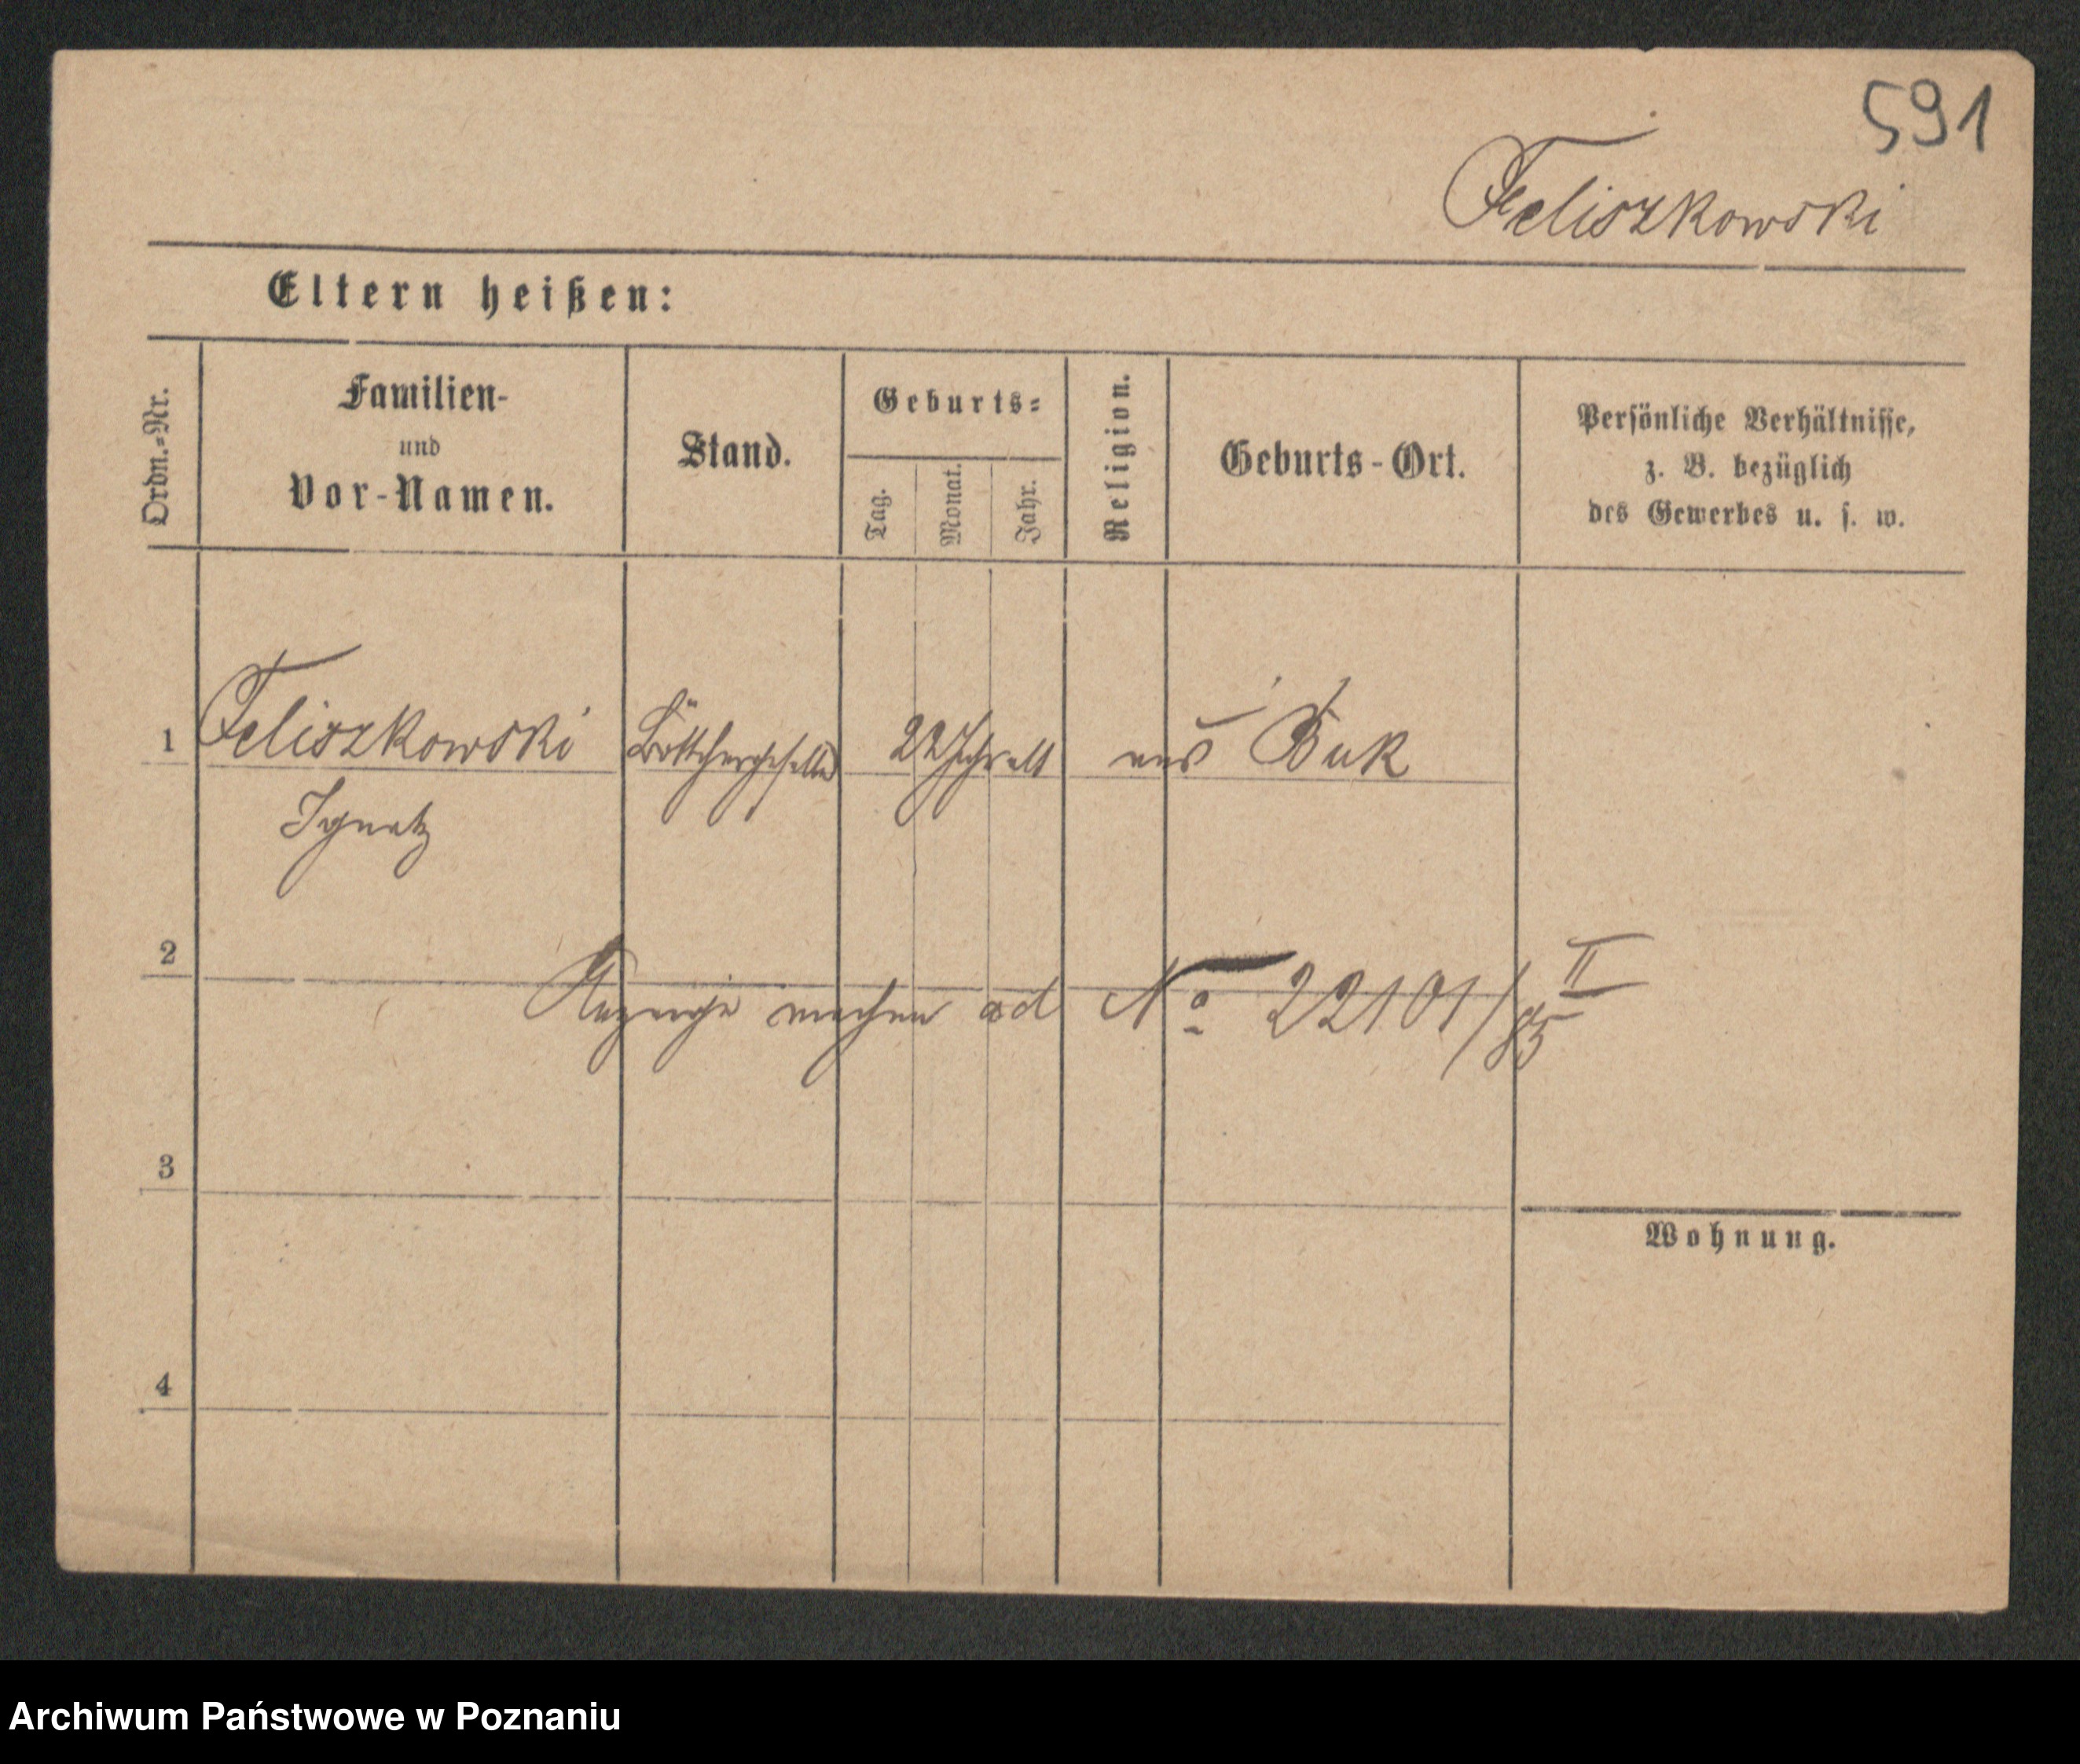 591
Feliszkowski
Eltern heißen:
Ordn.-Nr.
Familien-
und
Vor-Namen.
Stand.
Geburts-
Tag.
Monat.
Jahr.
Religion.
Geburts-Ort.
Persönliche Verhältnisse,
z. B. bezüglich
des Gewerbes u. s. w.
1 Feliszkowski Böttchergeselle 22 Jahr alt aus Buk
Ignatz
2
Anzeige machen ad No 22101/85 II
3
Wohnung.
4
Archiwum Państwowe w Poznaniu